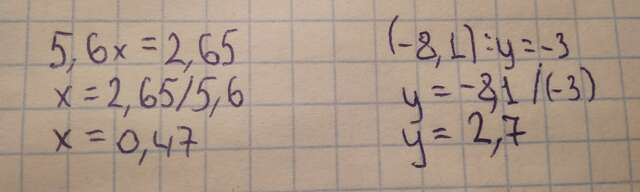 5,6x = 2,65
x = 2,65/5,6
x = 0,47
(-8,1) : y = -3
y = -8,1 /(-3)
y = 2,7